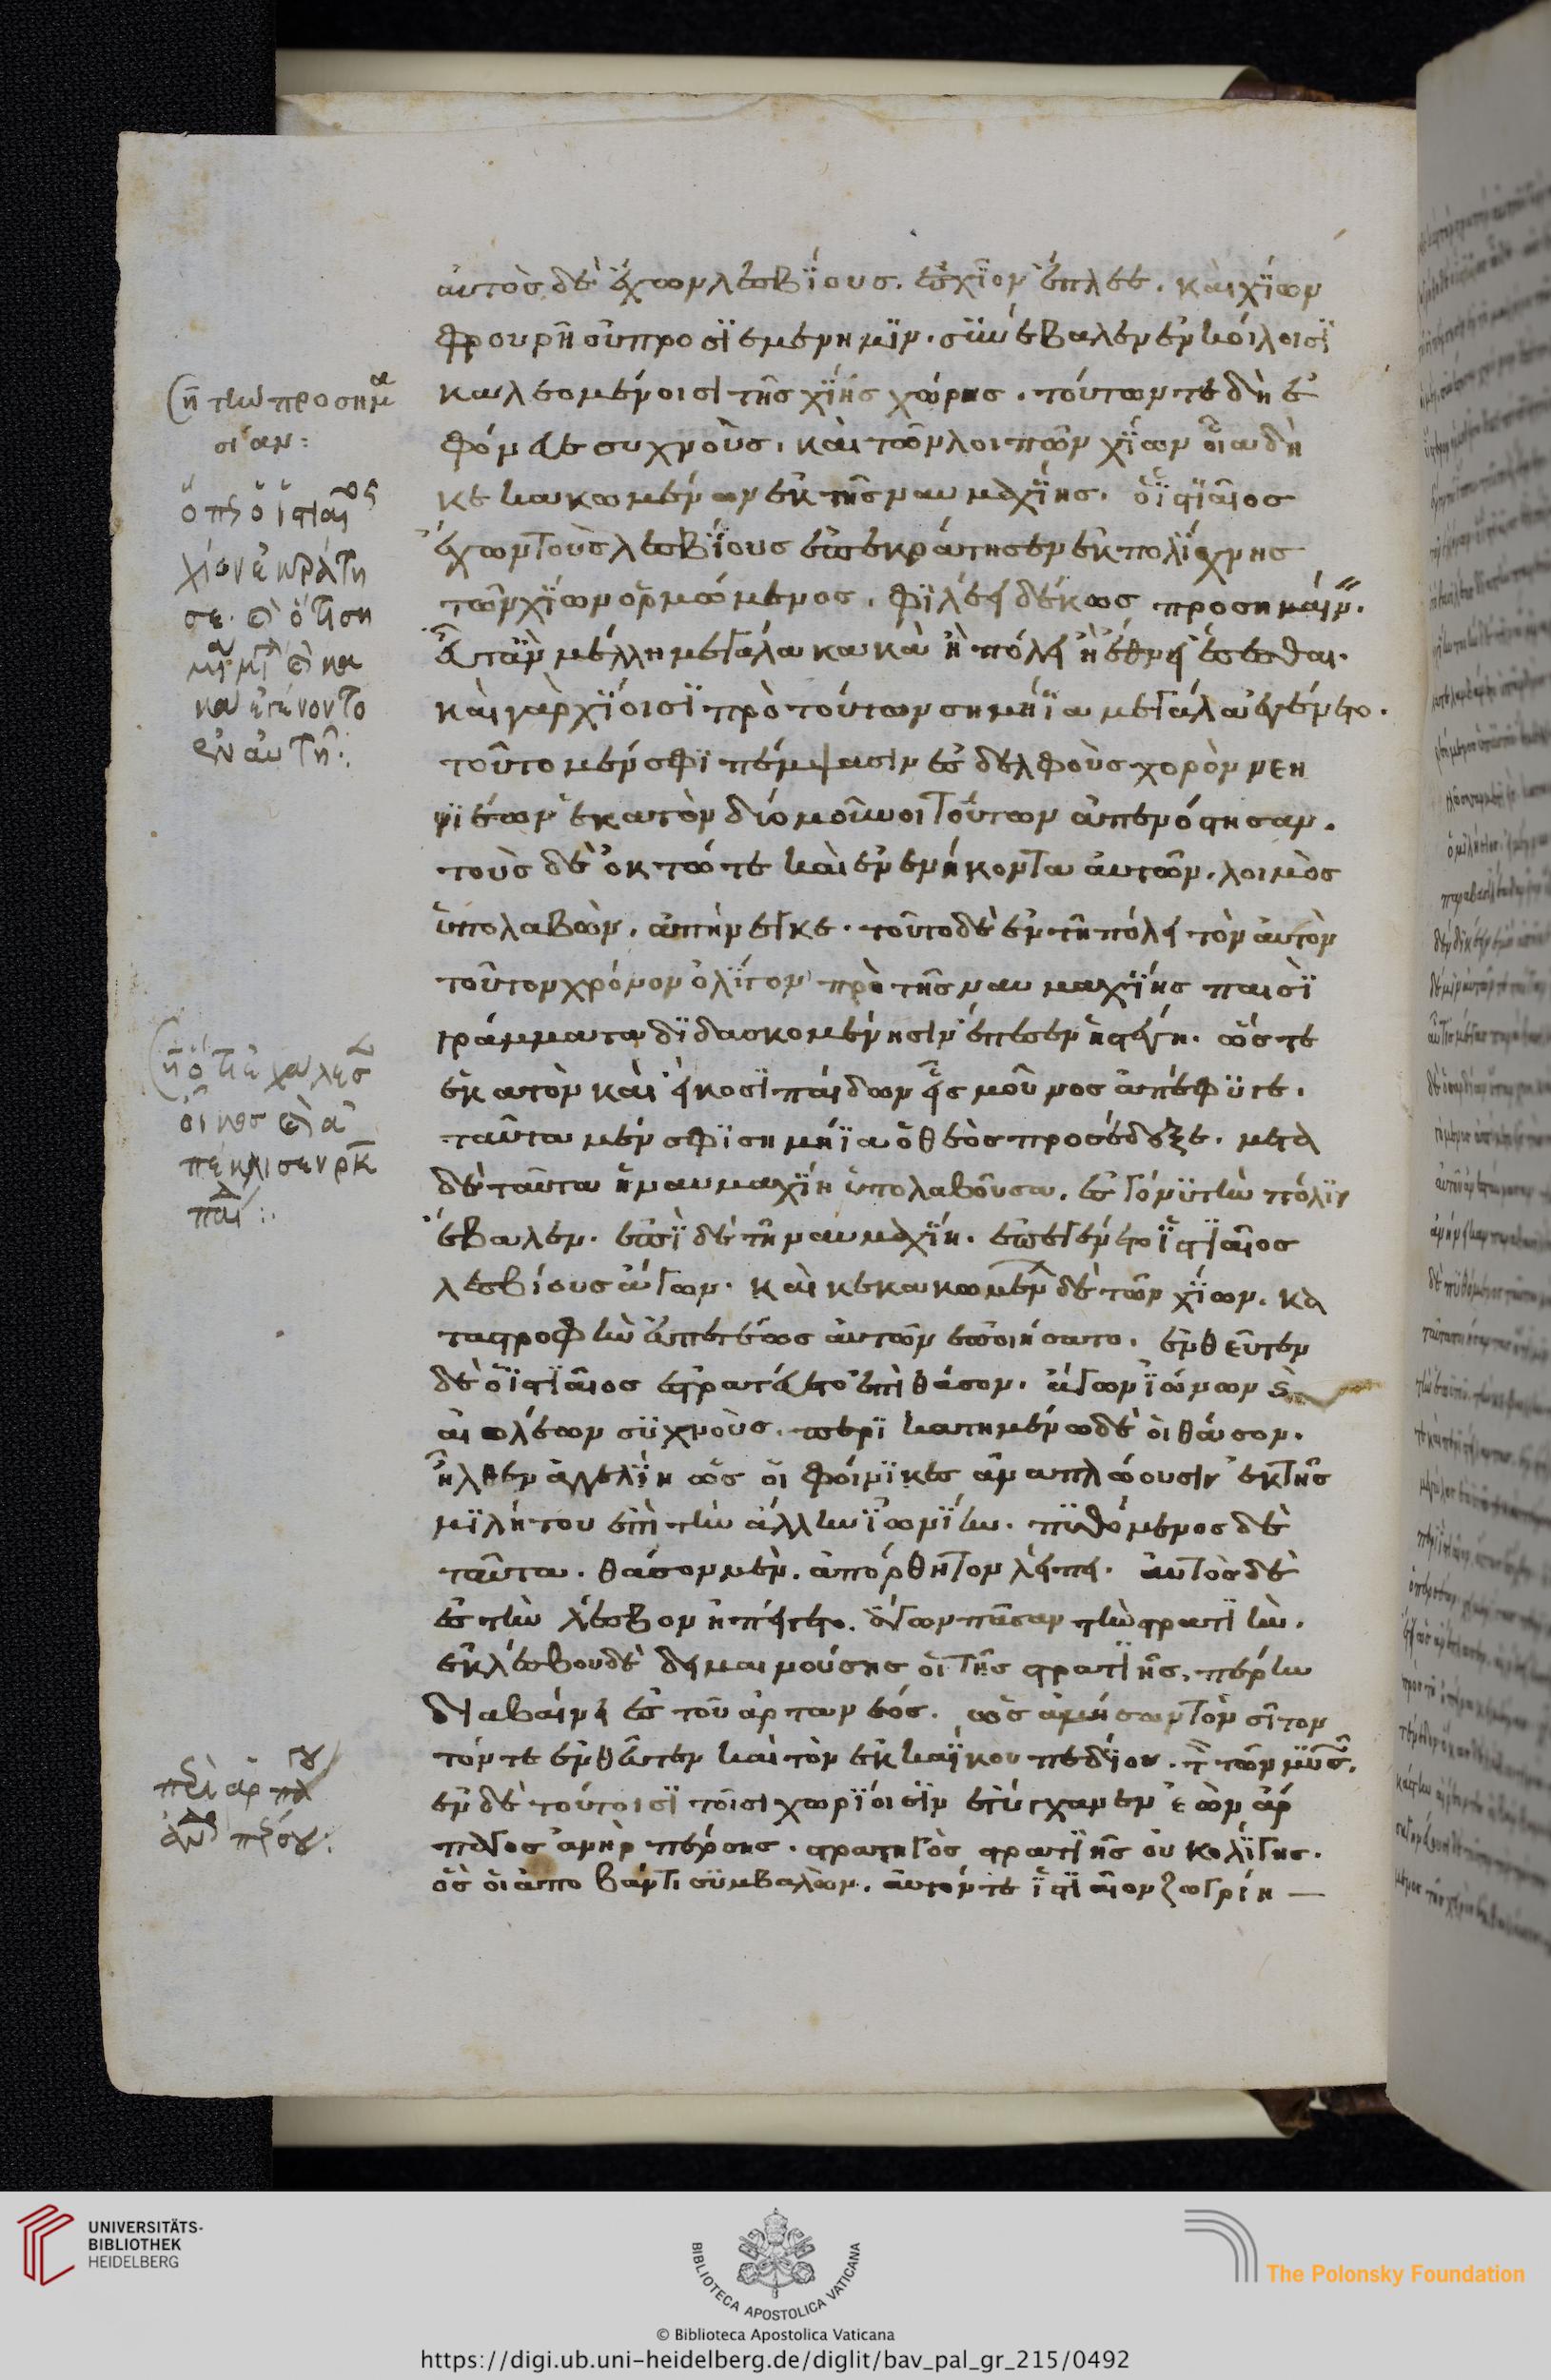 αὐτὸς δὲ ἔχων λεσβΐους. ἐς χῖον ἔπλεε. καὶ χΐων
φρουρῆ οὐ προσϊεμένη μϊν. συνέβαλεν ἐν κοίλοισϊ
καλεομένοισι τῆς χΐης χώρης. τούτων τε δὴ ἐ
φόνευσε συχνοὺς, καὶ τῶν λοιπῶν χΐων οἷα δὴ
κεκακωμένων ἐκ τῆς ναυμαχΐης. ὁ ϊστιαῖος
ἔχων τοὺς λεσβΐους ἐπεκράτησεν ἐκ πολΐχνης
τῶν χΐων ὁρμώμενος. φϊλέει δέ κως προσημαίνειν.
εὖτ' ἂν μέλλη μεγάλα κακὰ ἢ πόλει ἢ ἔθνει ἔσεσθαι.
καὶ γὰρ χΐοισϊ πρὸ τούτων σημήϊα μεγάλα ἐγένετο.
τοῦτο μέν σφϊ πέμψασιν ἐς δελφοὺς χορὸν νεη
νϊέων ἑκατὸν δύο μοῦνοι τούτων ἀπενόστησαν.
τοὺς δὲ ὀκτώ τε καὶ ἐνενήκοντα αὐτῶν. λοιμὸς
ὑπολαβὼν. ἀπήνεικε. τοῦτο δὲ ἐν τῆ πόλει τὸν αὐτὸν
τοῦτον χρόνον ὀλΐγον πρὸ τῆς ναυμαχΐης παισὶ
γράμματα δϊδασκομένησιν ἔπεσεν ἡ στέγη. ὥστε
ἑκατὸν καὶ εἴκοσϊ παίδων εἷς μοῦνος ἀπέφυγε.
ταῦτα μέν σφϊ σημήϊα ὁ θεὸς προσέδεξε. μετὰ
δὲ ταῦτα ἡ ναυμαχΐη ὑπολαβοῦσα. ἐς γόνυ τὴν πόλϊν
ἔβαλεν. ἐπῒ δὲ τῆ ναυμαχΐη. ἐπεγένετο ϊστιαῖος
λεσβίους ἄγων. καὶ κεκακωμένων δὲ τῶν χΐων. κα
ταστροφὴν ἀπετέως αὐτῶν ἐποιήσατο. ἐνθεῦτεν
δὲ ὁ ϊστιαῖος ἐστρατεύετο ἐπὶ θάσον. ἄγων ϊώνων καὶ
αἰολέων συχνοὺς. περϊκατημένω δέ οἱ θάσον.
ἦλθεν ἀγγελΐη ὡς οἱ φοίνικες ἀναπλώουσιν ἐκ τῆς
μϊλήτου ἐπὶ τὴν ἄλλην ϊωνΐην. πυθόμενος δὲ
ταῦτα. θάσον μὲν. ἀπόρθητον λείπει. αὐτὸς δὲ
ἐς τὴν λέσβον ἠπείγετο. ἄγων πᾶσαν τὴν στρατϊὴν.
ἐκ λέσβου δὲ δειμαινούσης οἱ τῆς στρατϊῆς. πέρην
διαβαίνει ἐς τοῦ ἀρταρνέος. ὡς ἀμήσων τὸν σῖτον
τόν τε ἐνθεῦτεν καὶ τὸν ἐκ καΐκου πεδΐου. τὸν τῶν μυσῶν.
ἐν δὲ τούτοισϊ τοῖσι χωρΐοισϊν ἐτύγχανεν ἐὼν ἅρ
παγος ἀνὴρ πέρσης. στρατηγὸς στρατϊῆς οὐκ ὀλΐγης.
ὅς οἱ ἀποβάντι συμβαλὼν. αὐτόν τε ϊστϊαῖον ζωγρίη
ση τὴν προσημα
σίαν:
ὅπως ὁ ἱστιαῖος
χίον ἐκράτη
ἐγένοντο
ἐν αὐτῆ:
περὶ ἁρπάγου
ἀνδρὸς πέρσου:
UNIVERSITÄTS-
BIBLIOTHEK
HEIDELBERG
BIBLIOTECA APOSTOLICA VATICANA
© Biblioteca Apostolica Vaticana
The Polonsky Foundation
https://digi.ub.uni-heidelberg.de/diglit/bav_pal_gr_215/0492